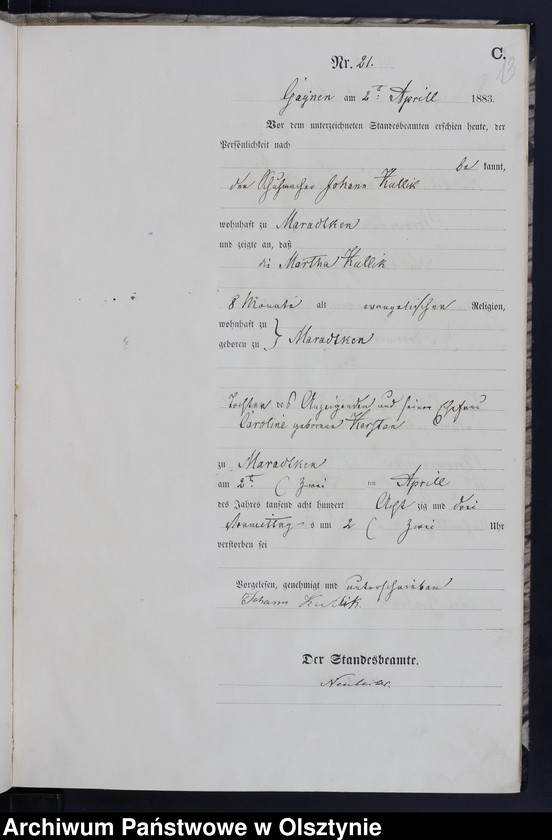 C.
13
Nr. 21.
Gaynen am 2t: Aprill 1883.
Vor dem unterzeichneten Standesbeamten erschien heute, der
Persönlichkeit nach
be kannt,
der Schuhmacher Johann Kullik
wohnhaft zu Maradtken
und zeigte an, daß
die Martha Kullik
8 Monate alt evangelischer Religion,
wohnhaft zu
geboren zu } Maradtken
Tochter des Anzeigenden und seiner Ehefrau
Caroline geborene Kerstan
zu Maradtken
am 2t: ( Zwei ten Aprill
des Jahres tausend acht hundert Acht zig und drei
Vormittag s um 2 ( Zwei Uhr
verstorben sei
Vorgelesen, genehmigt und unterschrieben
Johann Kullik
Der Standesbeamte.
Archiwum Państwowe w Olsztynie